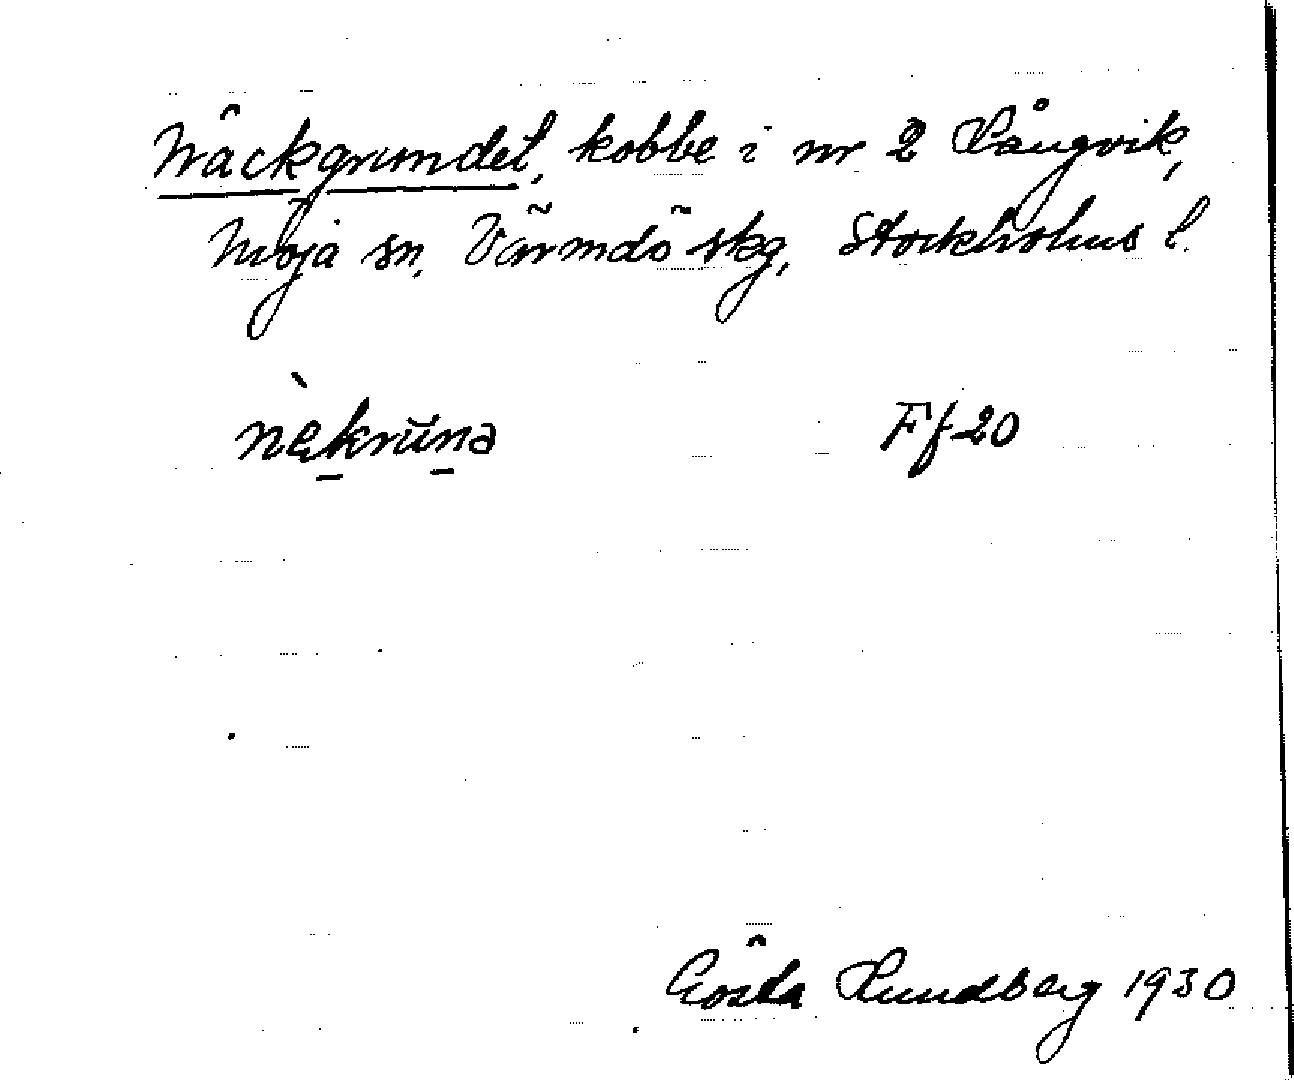 Näckgrundet, kobbe i nr 2 Långvik,
Möja sn, Värmdö skg, Stockholms l.
nèkrŭna Ff 20
Gösta Lundberg 1930